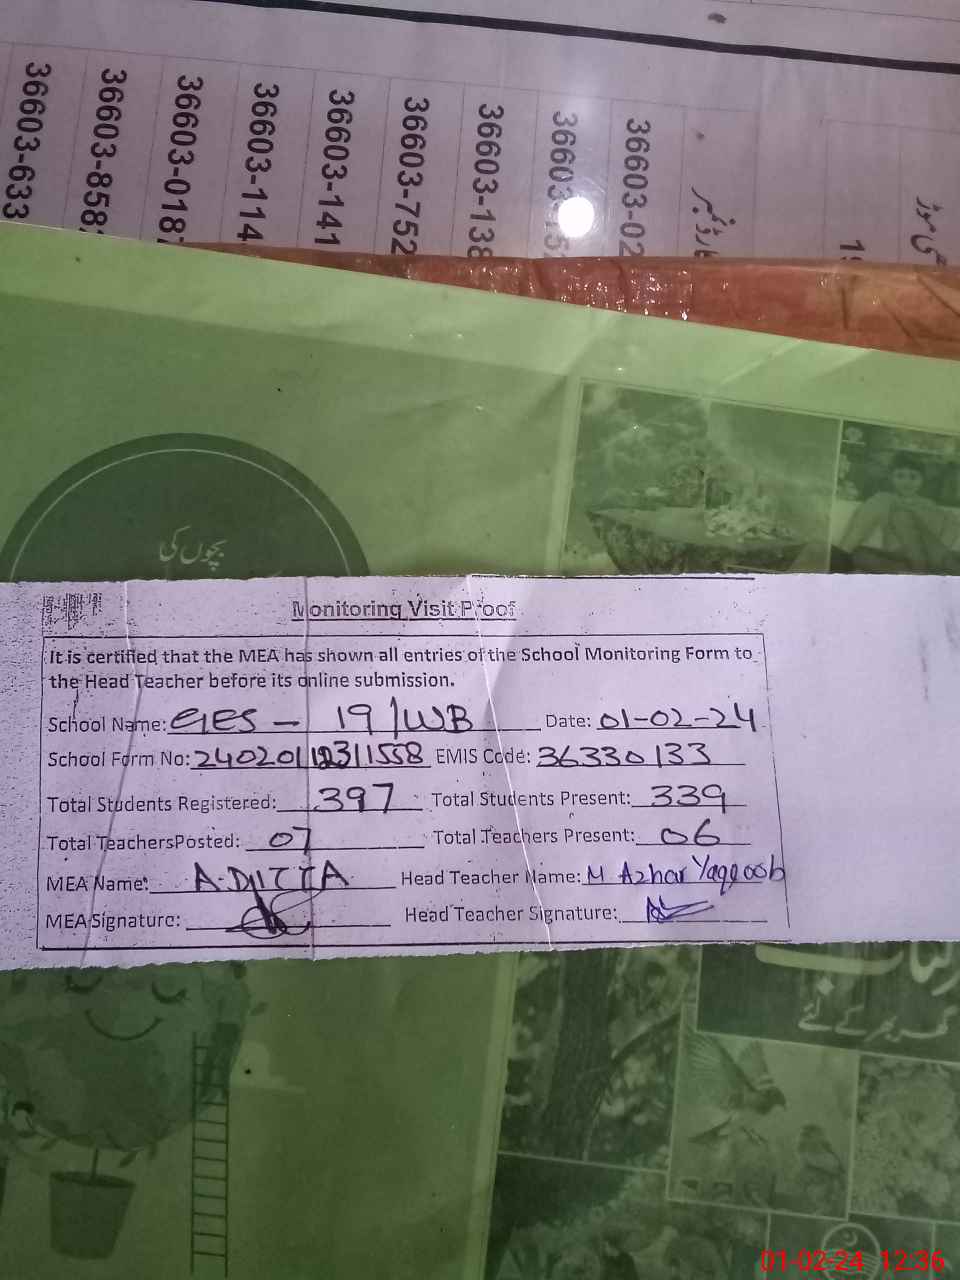 36603-633
36603-858
36603-018
36603-114
36603-141
36603-752
36603-138
36603-
36603-02
بچوں کی
Monitoring Visit Proof
It is certified that the MEA has shown all entries of the School Monitoring Form to
the Head Teacher before its online submission.
School Name: GES - 19/WB Date: 01-02-24
School Form No: EMIS Code: 36330133
Total Students Registered: 397 Total Students Present: 339
Total TeachersPosted: 07 Total Teachers Present: 06
MEA Name: A.DITTA Head Teacher Name: M Azhar Yaqoob
MEA Signature: Head Teacher Signature:
01-02-24 12:36